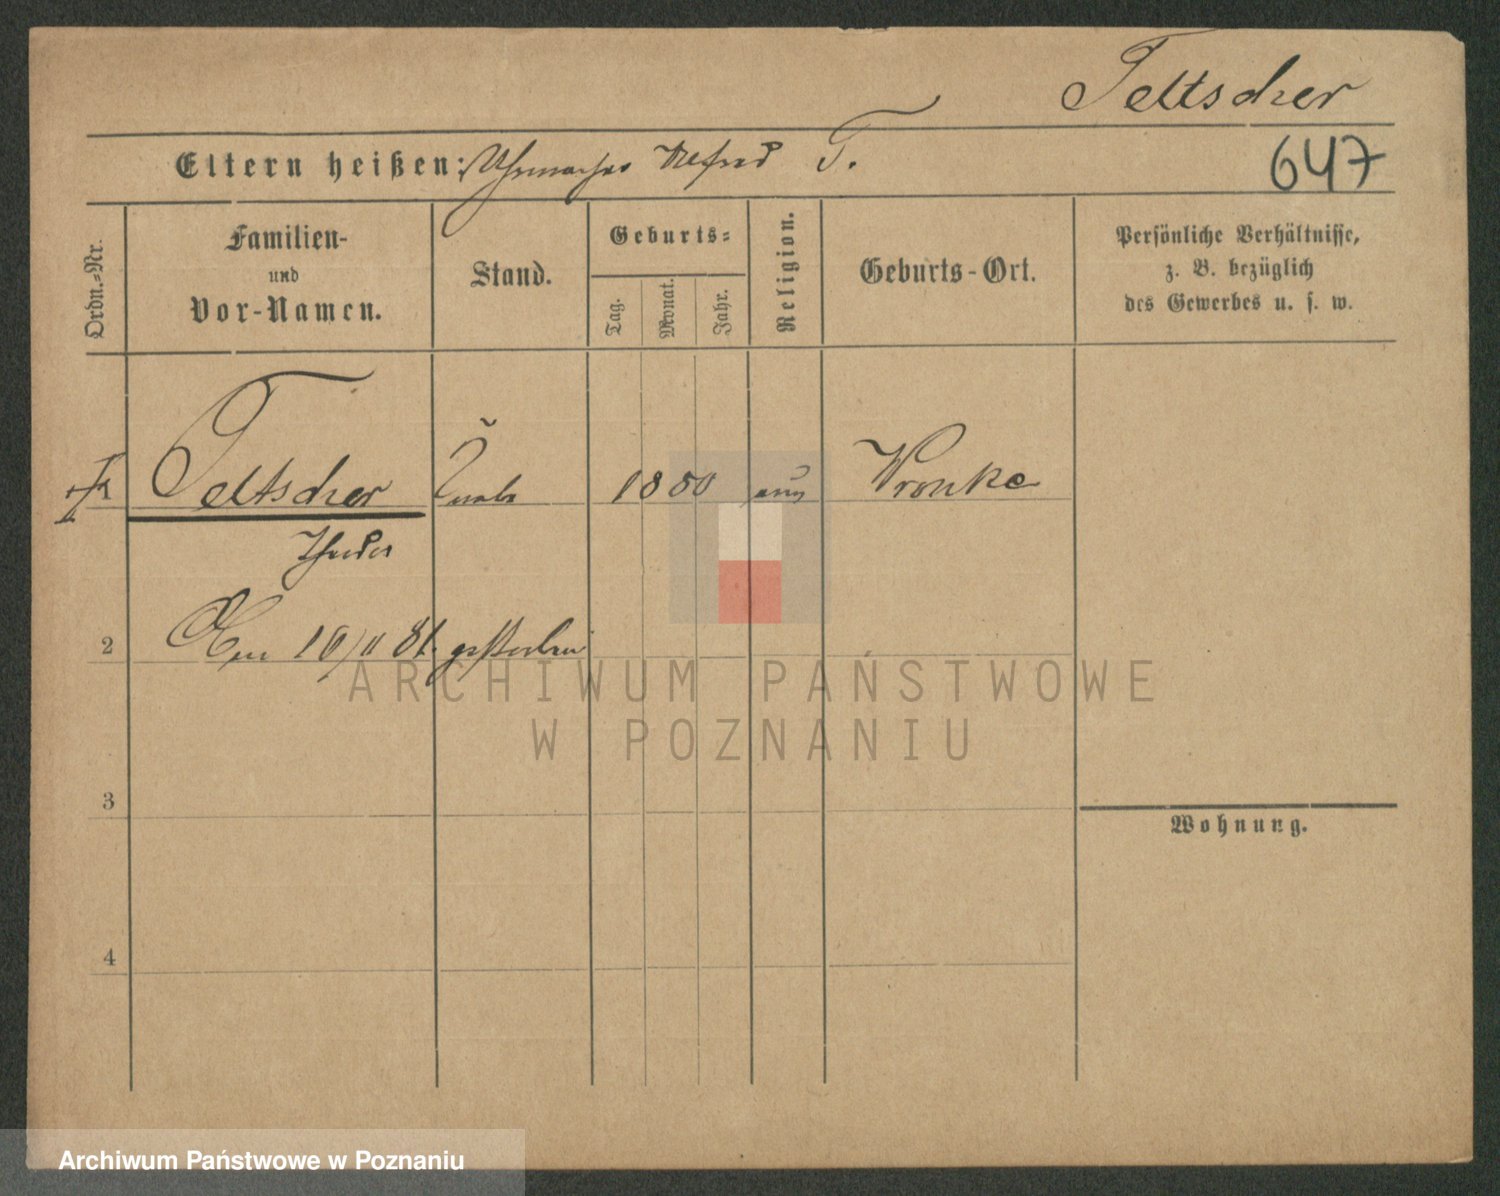 Teltscher
Eltern heißen: Uhrmacher Alfred T.
647
Ordn.-Nr.
Familien-
und
Vor-Namen.
Stand.
Geburts-
Tag.
Monat.
Jahr.
Religion.
Geburts-Ort.
Persönliche Verhältnisse,
z. B. bezüglich
des Gewerbes u. s. w.
Teltscher
Knabe
1880
Wronke
2
10/11 81. gestorben
3
4
Wohnung.
ARCHIWUM PAŃSTWOWE
W POZNANIU
Archiwum Państwowe w Poznaniu